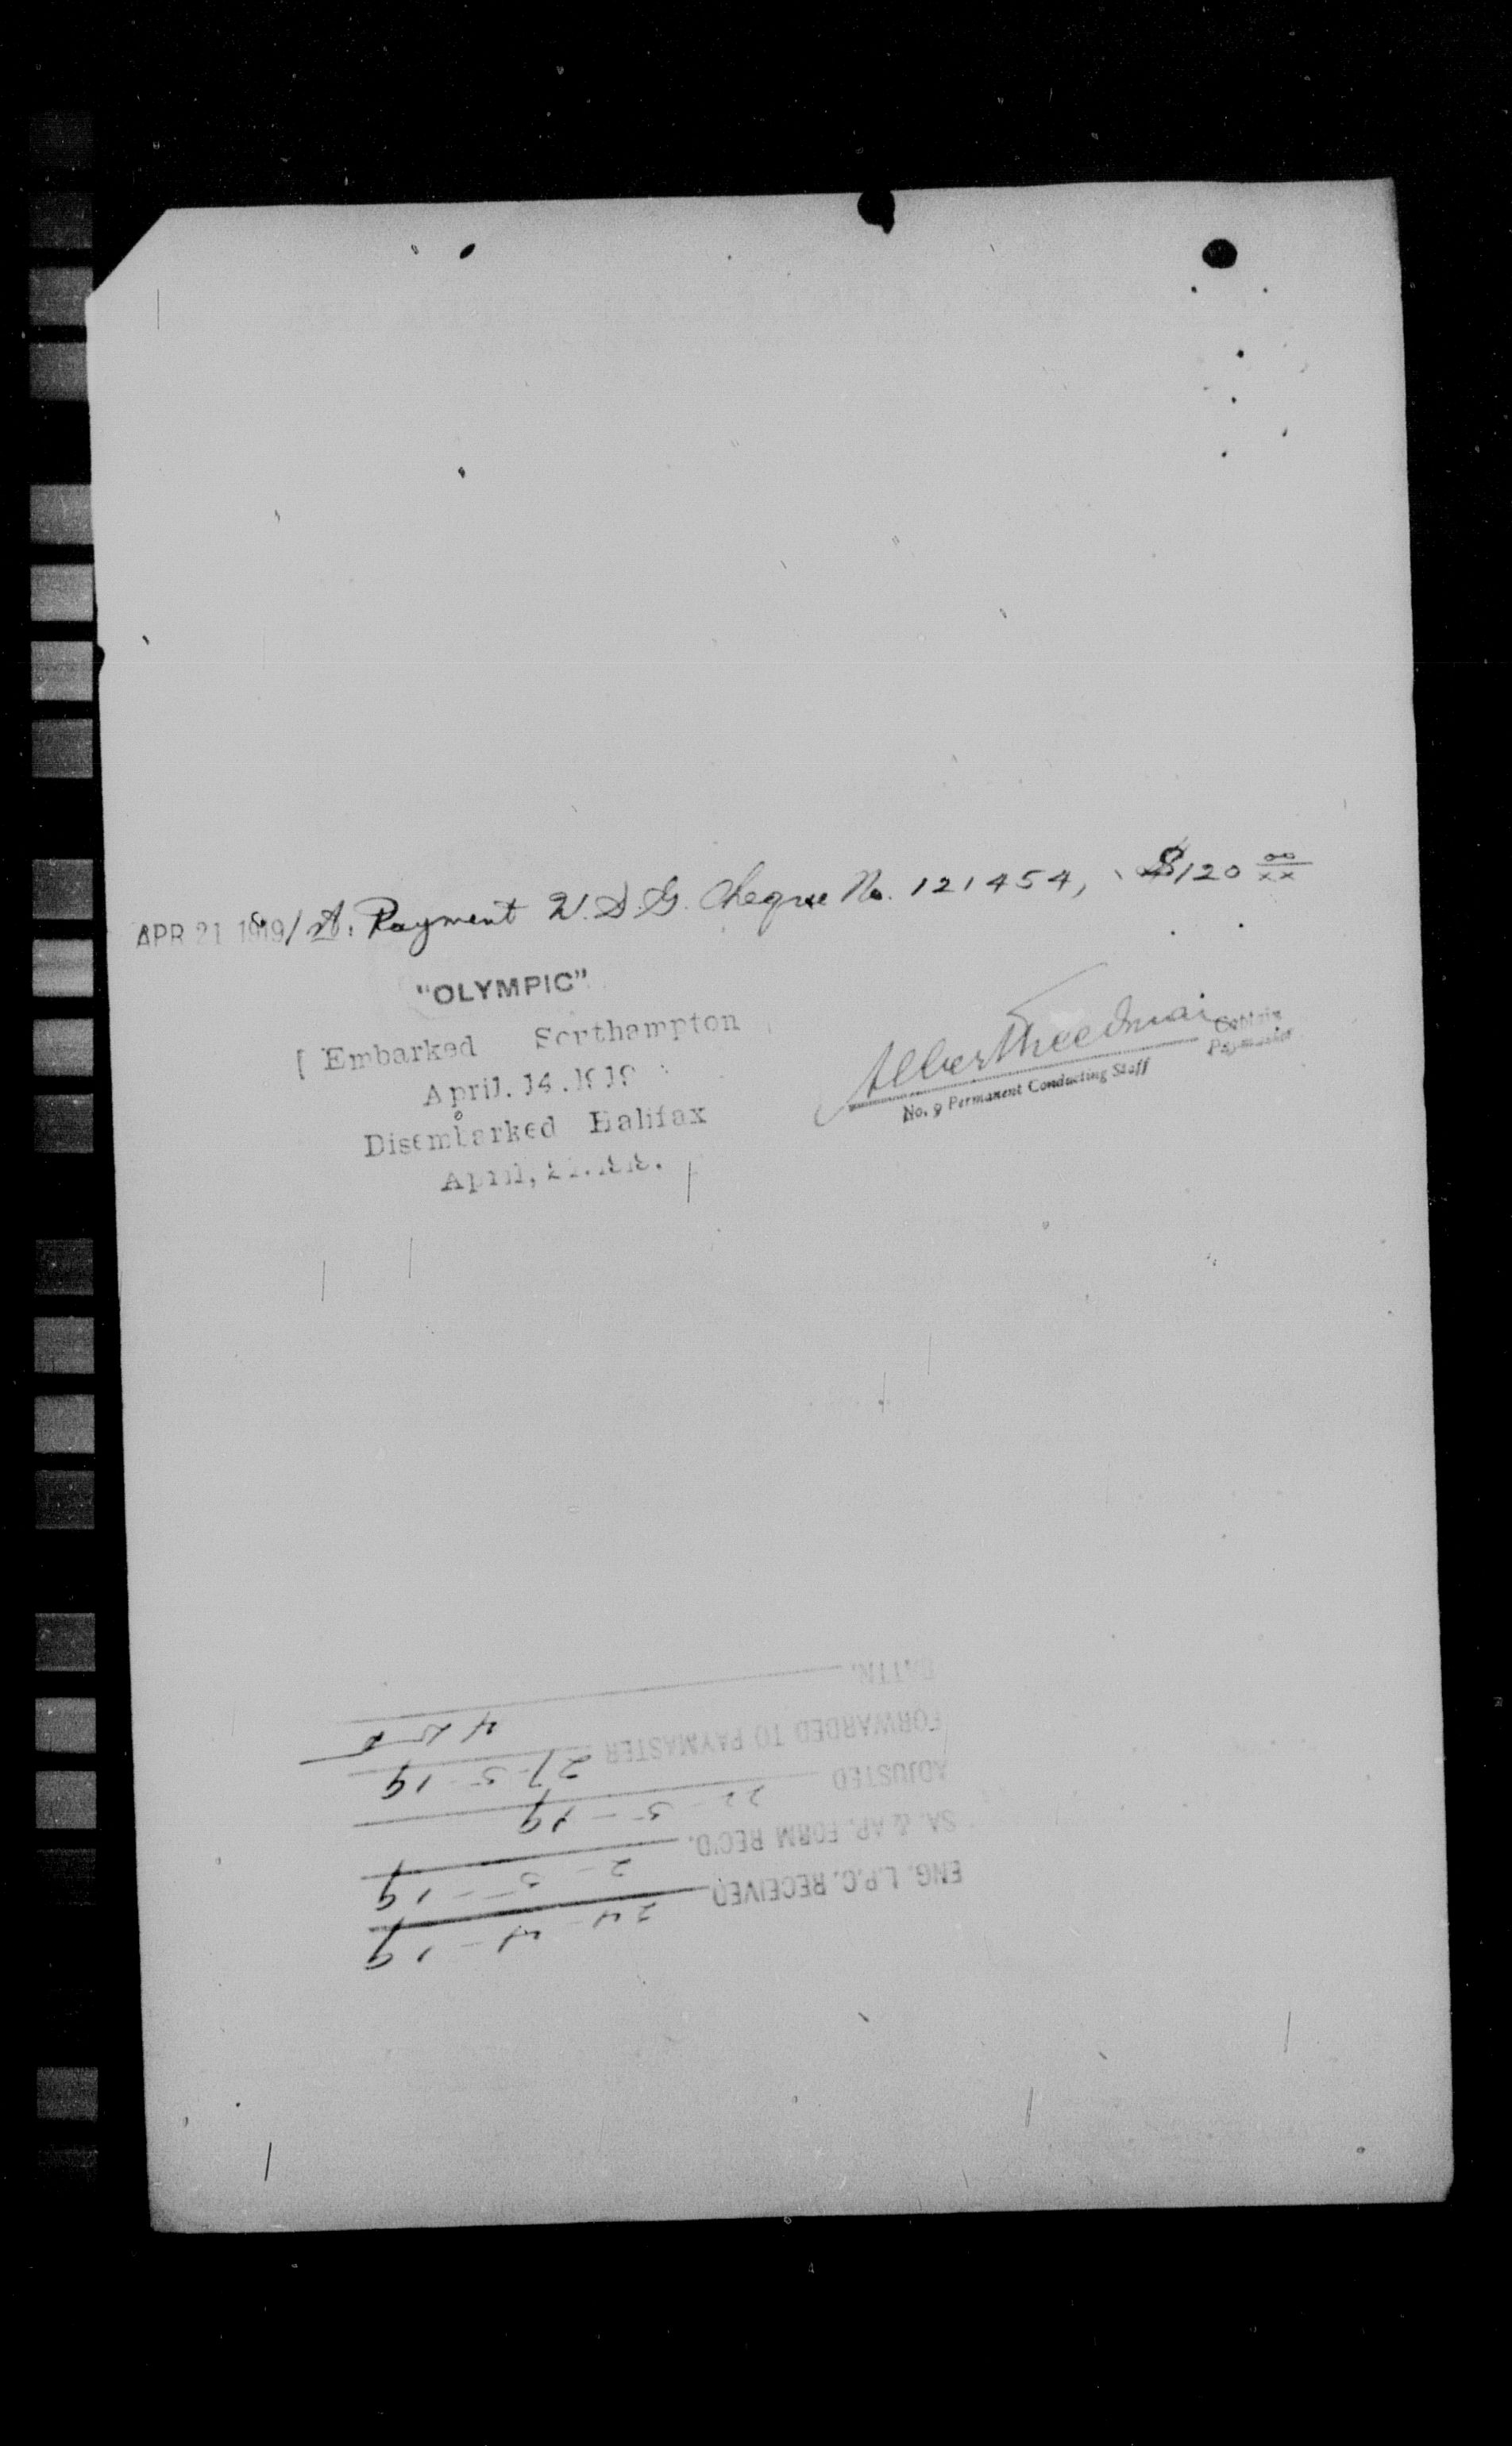 APR 21 1919 1st. Payment W.S.G. Cheque No. 121454, $120 00/xx
"OLYMPIC"
Embarked Southampton
April. 14. 1919
Disembarked Halifax
April, 21. 1919.
Captain
Paymaster
No. 9 Permanent Conducting Staff
ENG. L.P.C. RECEIVED 24-4-19
SA. & AP. FORM REC'D. 2-5-19
ADJUSTED 22-5-19
FORWARDED TO PAYMASTER 27-5-19
BATTN.